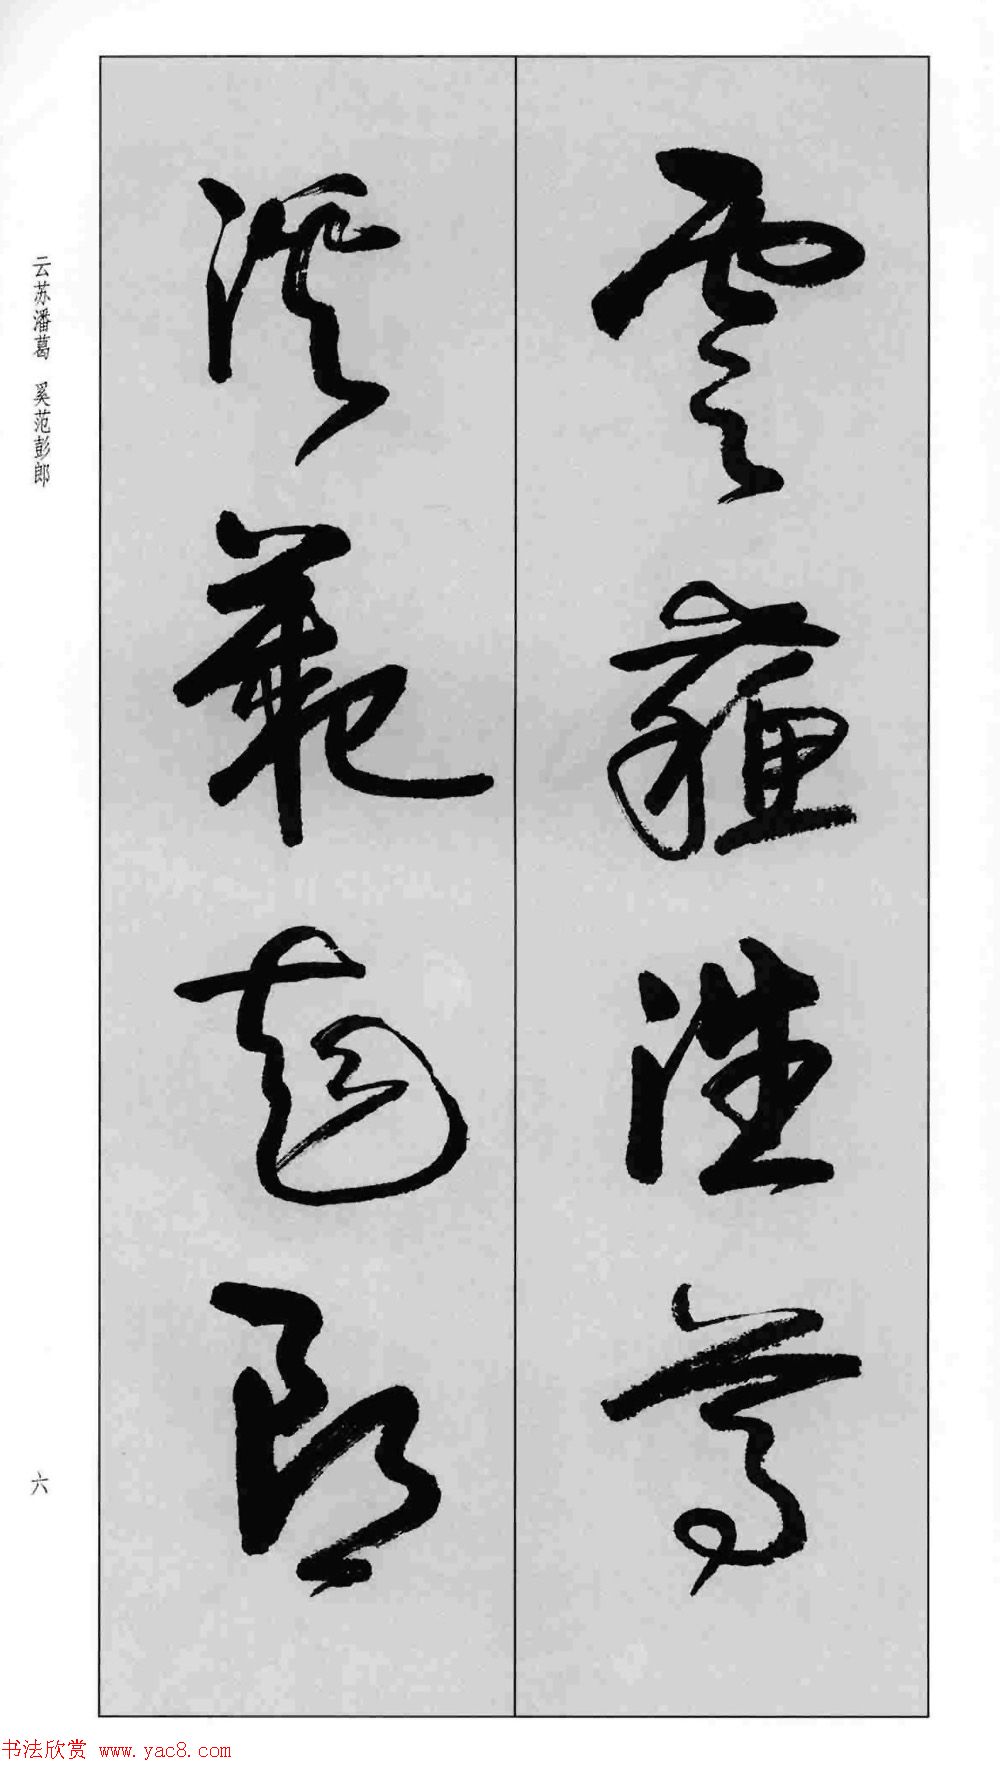 雲蘇潘葛
奚範彭郎
云苏潘葛 奚范彭郎
六
书法欣赏 www.yac8.com